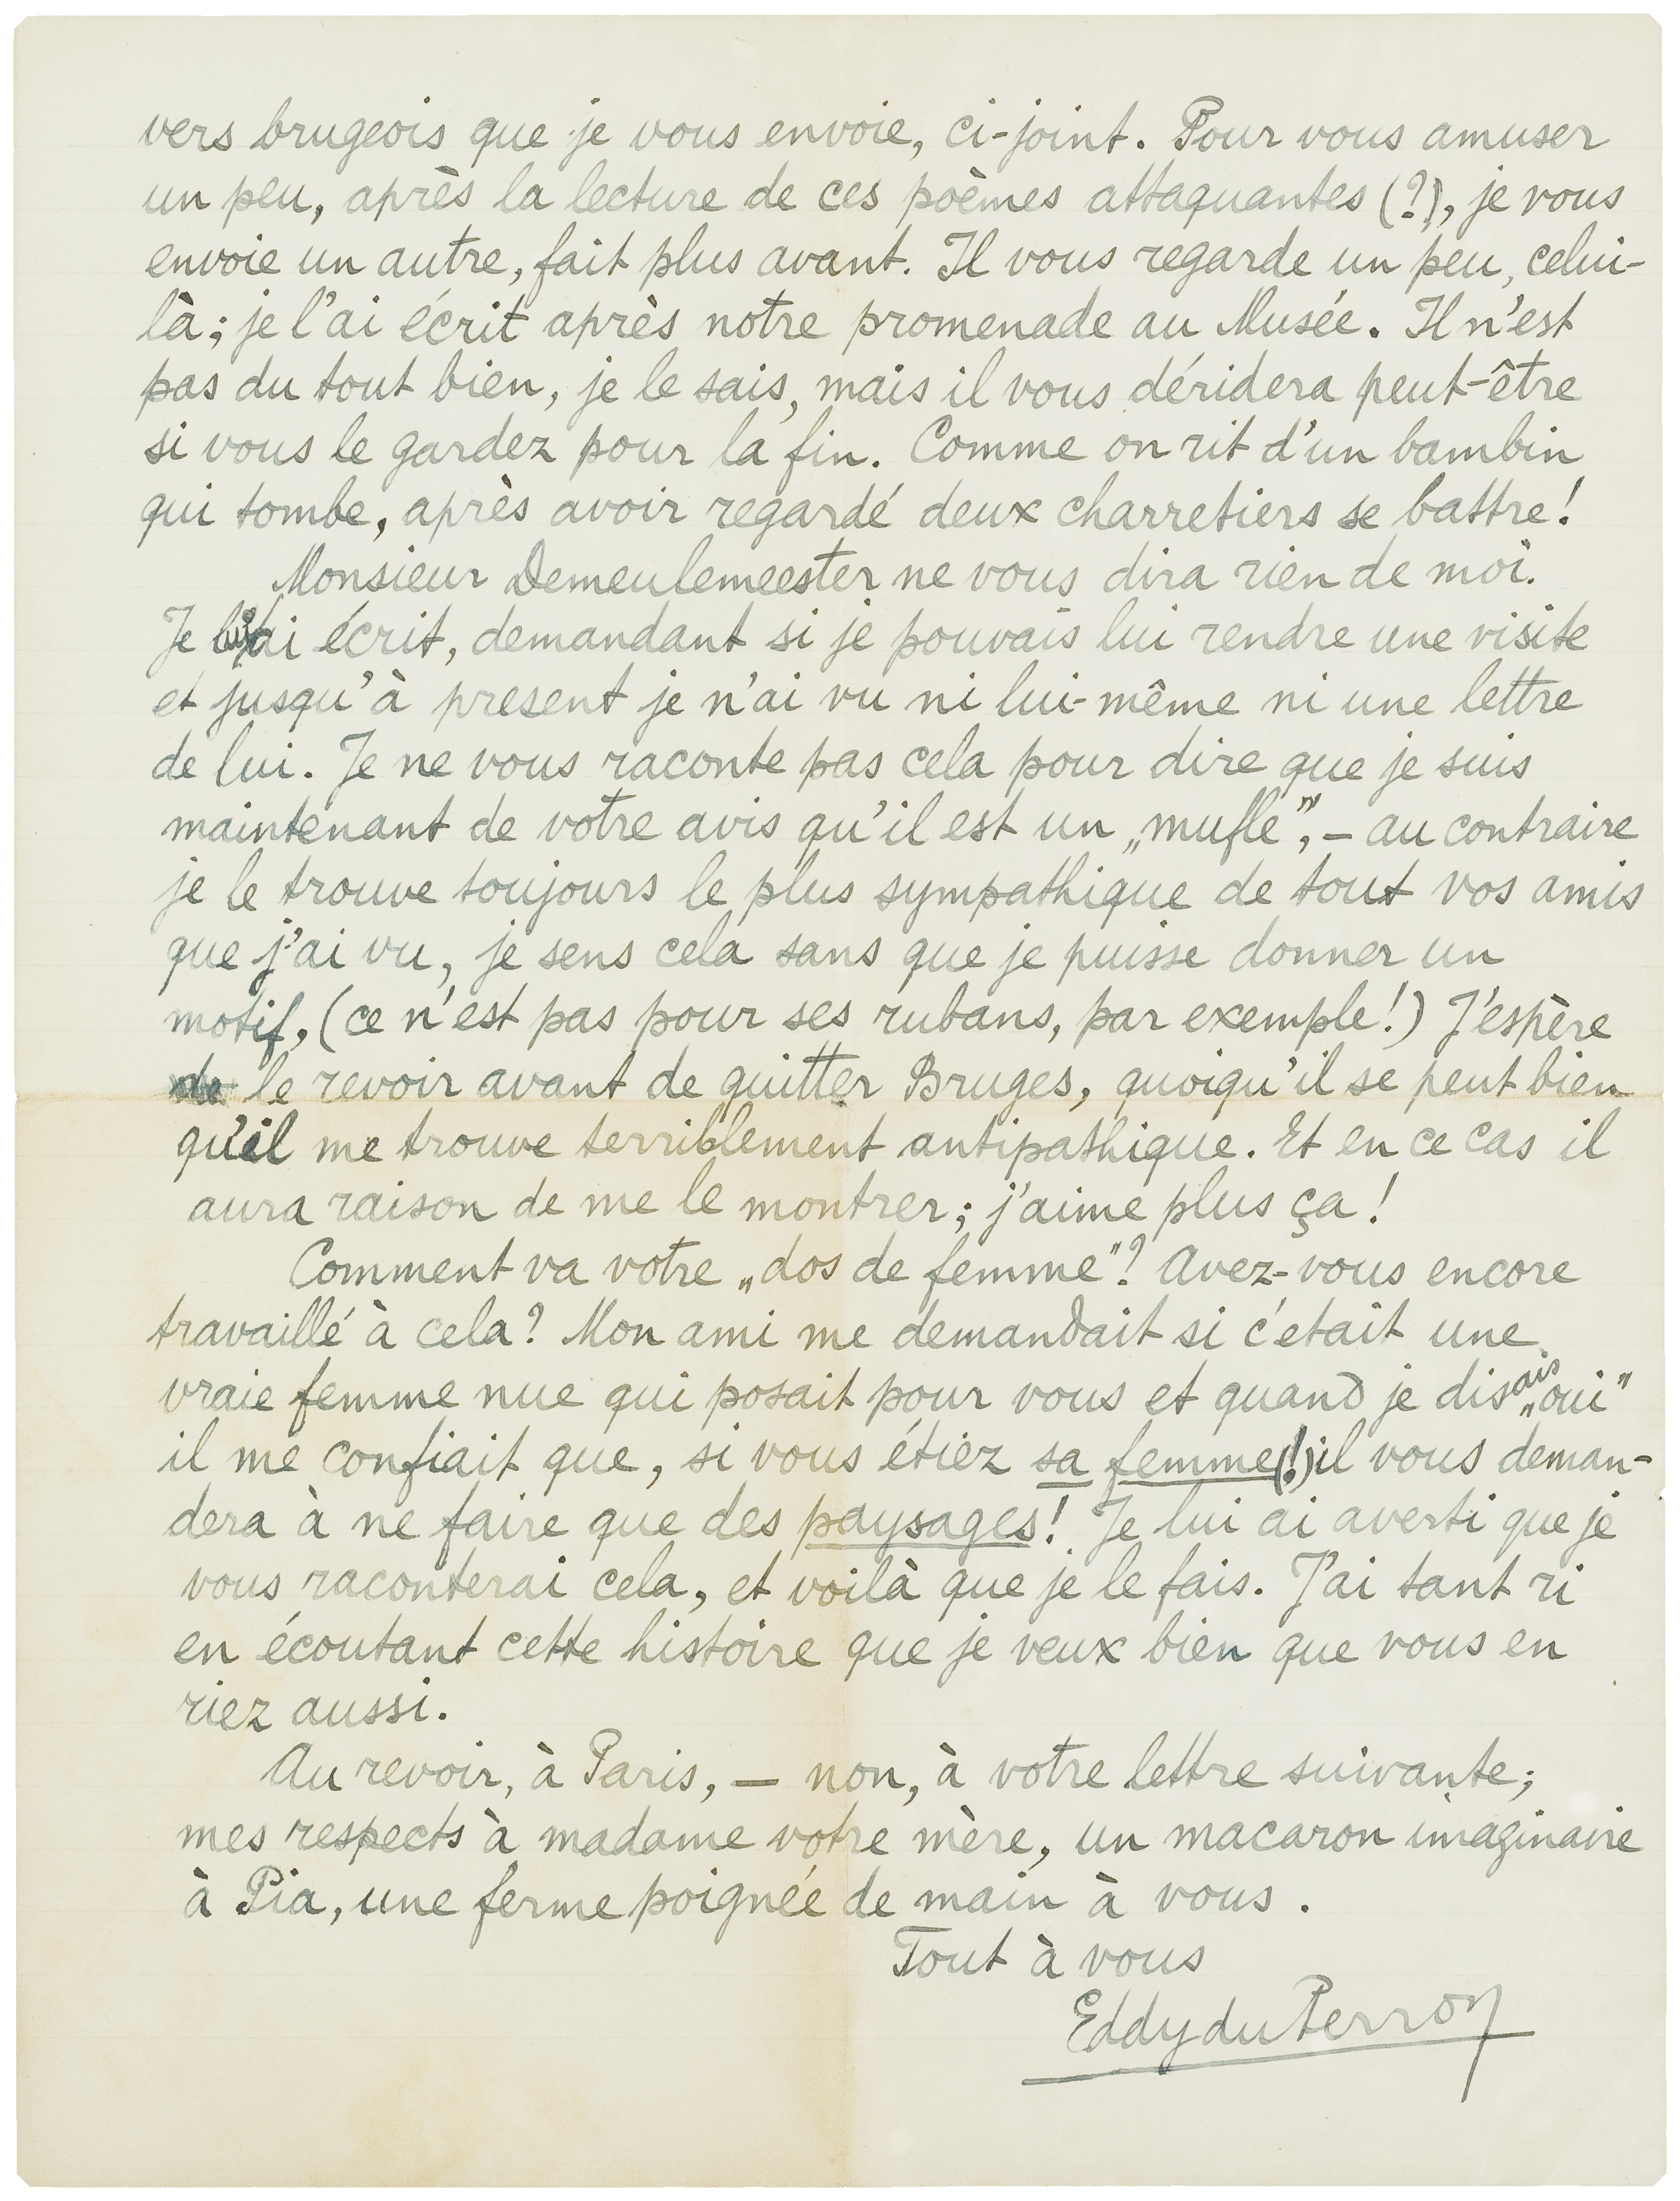 vers brugeois que je vous envoie, ci-joint. Pour vous amuser
un peu, après la lecture de ces poèmes attaquantes (?), je vous
envoie un autre, fait plus avant. Il vous regarde un peu, celui-
là; je l'ai écrit après notre promenade au Musée. Il n'est
pas du tout bien, je le sais, mais il vous déridera peut-être
si vous le gardez pour la fin. Comme on rit d'un bambin
qui tombe, après avoir regardé deux charretiers se battre!
Monsieur Demeulemeester ne vous dira rien de moi.
Je lui ai écrit, demandant si je pouvais lui rendre une visite
et jusqu'à present je n'ai vu ni lui-même ni une lettre
de lui. Je ne vous raconte pas cela pour dire que je suis
maintenant de votre avis qu'il est un „mufle”, – au contraire
je le trouve toujours le plus sympathique de tout vos amis
que j'ai vu, je sens cela sans que je puisse donner un
motif, (ce n'est pas pour ses rubans, par exemple!) J'espère
de le revoir avant de quitter Bruges, quoiqu'il se peut bien
qu'il me trouve terriblement antipathique. Et en ce cas il
aura raison de me le montrer; j'aime plus ça!
Comment va votre „dos de femme”? Avez-vous encore
travaillé à cela? Mon ami me demandait si c'etait une
vraie femme nue qui posait pour vous et quand je disais „oui”
il me confiait que, si vous étiez sa femme(!) il vous deman-
dera à ne faire que des paysages! Je lui ai averti que je
vous raconterai cela, et voilà que je le fais. J'ai tant ri
en écoutant cette histoire que je veux bien que vous en
riez aussi.
Au revoir, à Paris, – non, à votre lettre suivante;
mes respects à madame votre mère, un macaron imaginaire
à Pia, une ferme poignée de main à vous.
Tout à vous
Eddy du Perron